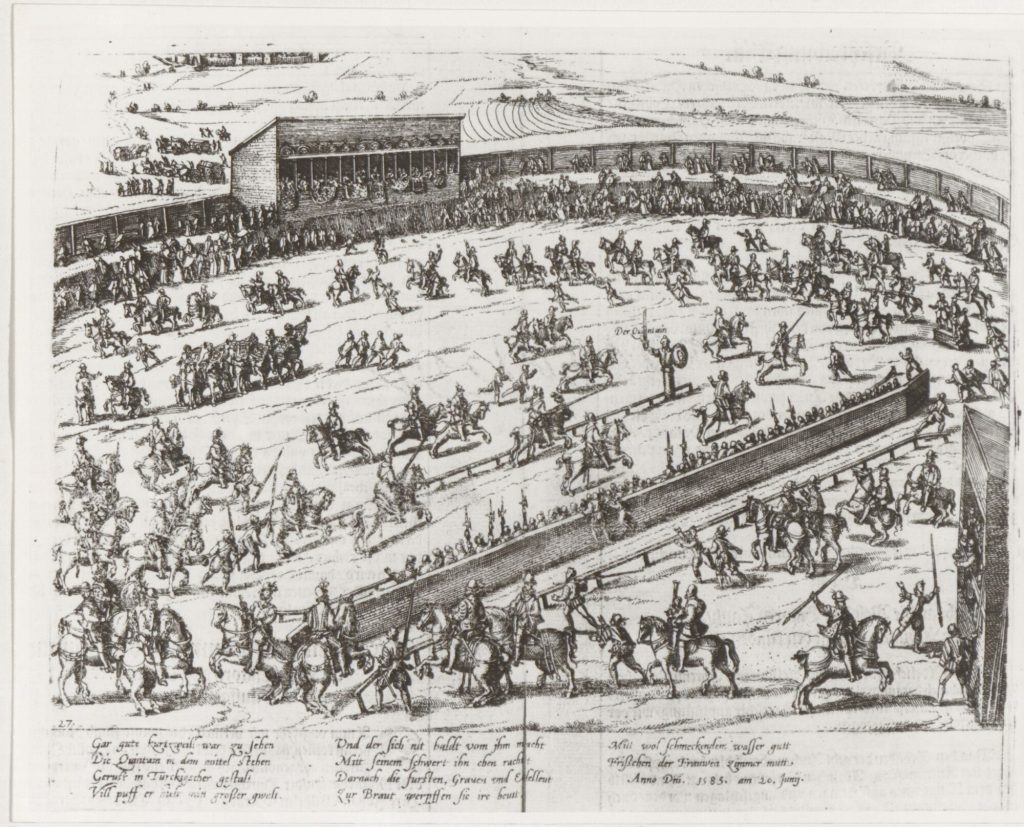 Der Quintain
27.
Gar gute kurtzweil war zu sehen
Die Quintain in dem mittel stehen
Gerust in Türckischer gestalt
Vill puff er mit großer gwelt.
Vnd der sich nit baldt vom ihm macht
Mitt seinem schwert ihn eben racht
Darnach die fursten, Grauen vnd Edelleut
Zur Braut werpffen sie ire beutt.
Mitt wol schmeckendem wasser gutt
Frischen der Frauwen zimmer mutt.
Anno Dni. 1585. am 20. Junij.